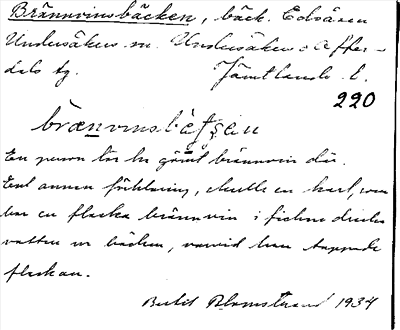 Brännvinsbäcken, bäck. Edsåsen
Undersåkers sn. Undersåkers o Offer-
dals tg. Jämtlands l.
220
En person lär ha gömt brännvin där.
Enl annan förklaring, skulle en karl, som
bar en flaska brännvin i fickan dricka
vatten ur bäcken, varvid han tappade
flaskan.
Bertil Blomstrand 1934